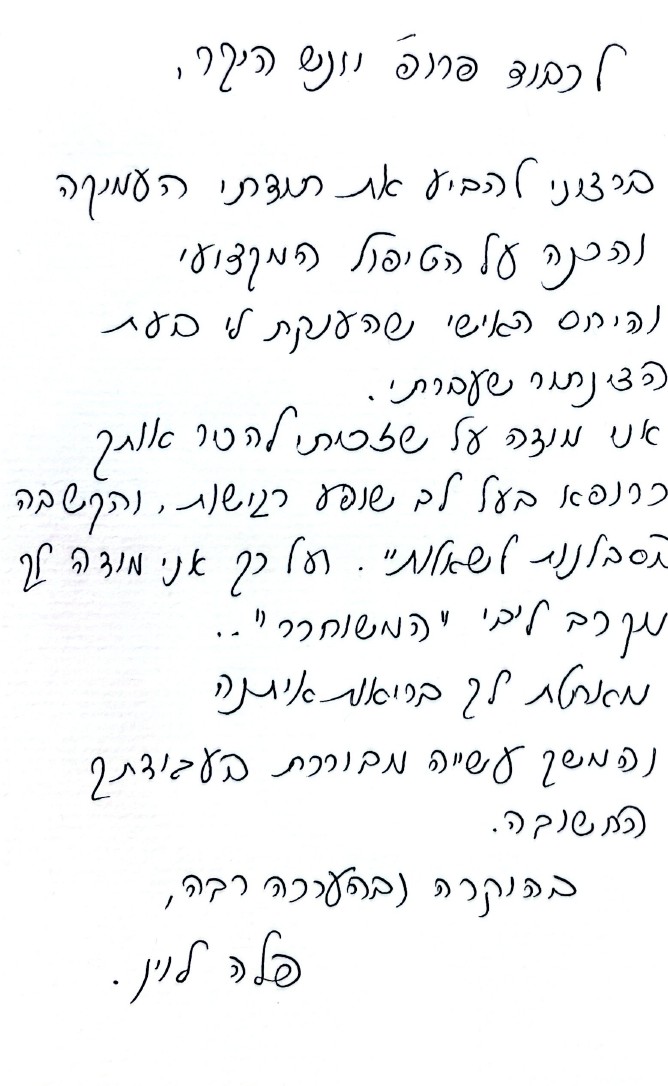 לכבוד פרופ' וונש היקר,
ברצוני להביע את תודתי העמוקה
והכנה על הטיפול המקצועי
והיחס האישי שהענקת לי בעת
הצינתור שעברתי.
אני מודה על שזכיתי להכיר אותך
כרופא בעל לב שופע רגישות, והקשבה
וסבלנות לשאלות". ועל כך אני מודה לך
מקרב ליבי "המשוחרר"..
מאחלת לך בריאות איתנה
והמשך עשייה מבורכת בעבודתך
החשובה.
בהוקרה ובהערכה רבה,
פלה לוין.